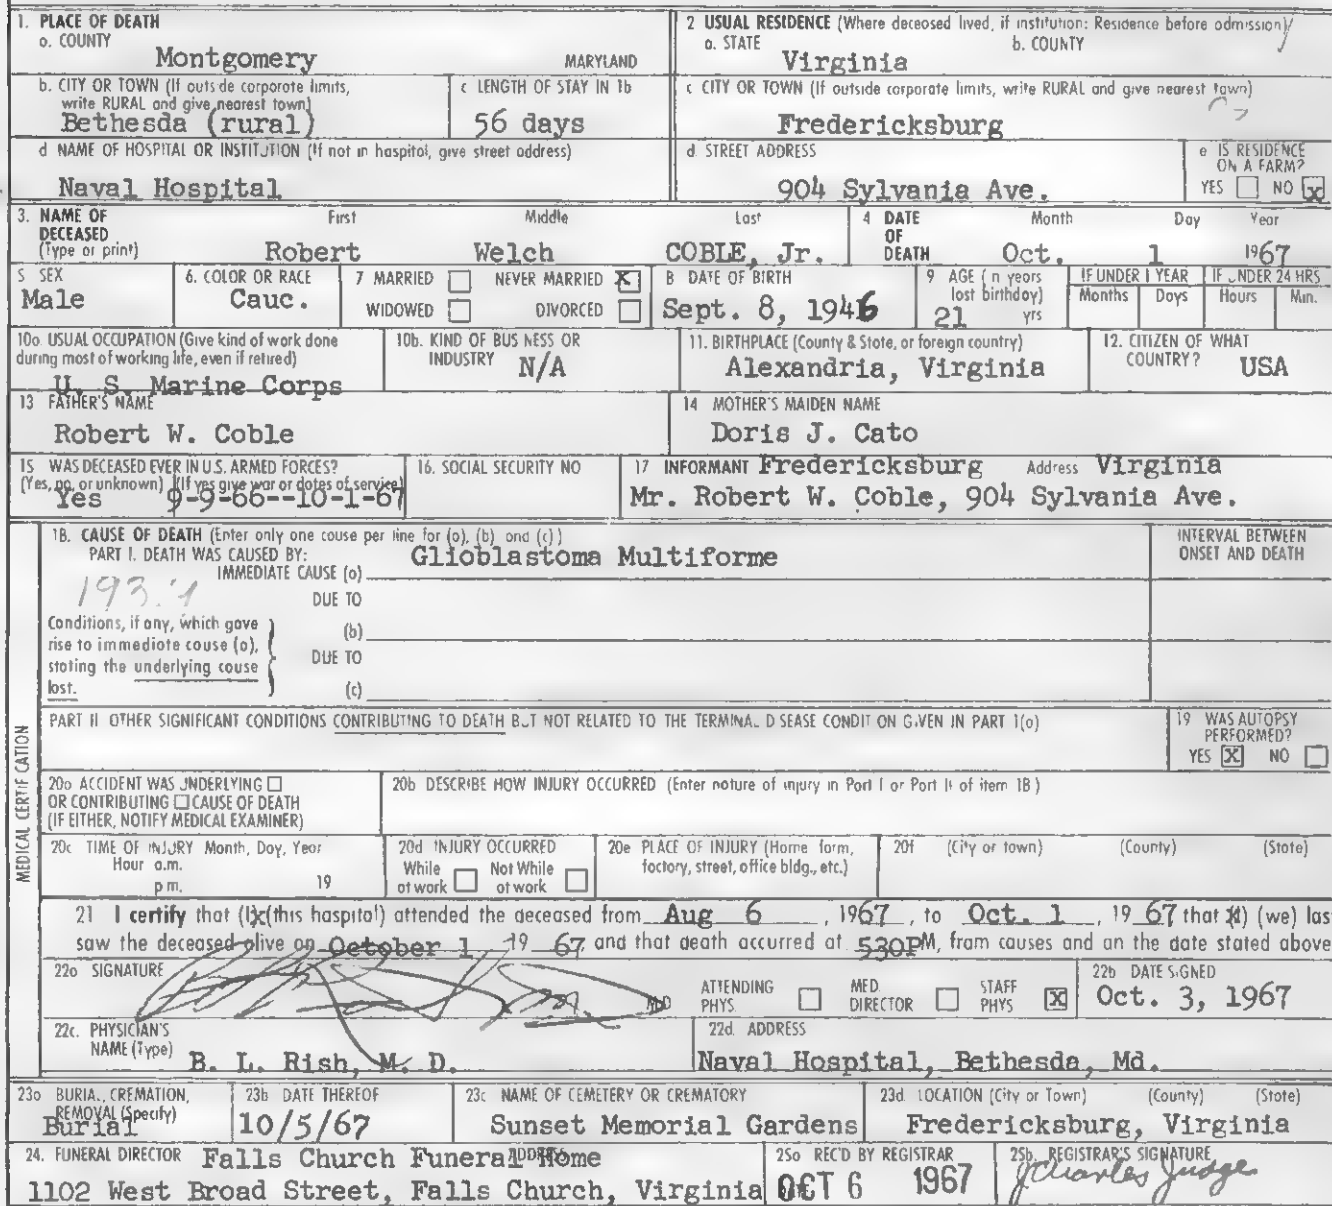 1. PLACE OF DEATH
a. COUNTY
Montgomery MARYLAND
2 USUAL RESIDENCE (Where deceased lived, if institution: Residence before admission)
a. STATE b. COUNTY
Virginia
b. CITY OR TOWN (If outside corporate limits, write RURAL and give nearest town)
Bethesda (rural)
c LENGTH OF STAY IN 1b
56 days
c CITY OR TOWN (If outside corporate limits, write RURAL and give nearest town)
Fredericksburg
d NAME OF HOSPITAL OR INSTITUTION (If not in hospital, give street address)
Naval Hospital
d. STREET ADDRESS
904 Sylvania Ave.
e IS RESIDENCE ON A FARM?
YES NO X
3. NAME OF DECEASED (Type or print)
First Middle Last
Robert Welch COBLE, Jr.
4 DATE OF DEATH
Month Day Year
Oct. 1 1967
5 SEX
Male
6. COLOR OR RACE
Cauc.
7 MARRIED NEVER MARRIED X
WIDOWED DIVORCED
8 DATE OF BIRTH
Sept. 8, 1946
9 AGE (In years last birthday)
21 yrs
IF UNDER 1 YEAR
Months Days
IF UNDER 24 HRS
Hours Min.
10a. USUAL OCCUPATION (Give kind of work done during most of working life, even if retired)
U. S. Marine Corps
10b. KIND OF BUSINESS OR INDUSTRY
N/A
11. BIRTHPLACE (County & State, or foreign country)
Alexandria, Virginia
12. CITIZEN OF WHAT COUNTRY?
USA
13 FATHER'S NAME
Robert W. Coble
14 MOTHER'S MAIDEN NAME
Doris J. Cato
15 WAS DECEASED EVER IN U.S. ARMED FORCES?
(Yes, no, or unknown) (If yes give war or dates of service)
Yes 9-9-66--10-1-67
16. SOCIAL SECURITY NO
17 INFORMANT Fredericksburg Address Virginia
Mr. Robert W. Coble, 904 Sylvania Ave.
MEDICAL CERTIFICATION
18. CAUSE OF DEATH (Enter only one cause per line for (a), (b) and (c))
PART I. DEATH WAS CAUSED BY:
IMMEDIATE CAUSE (a) Glioblastoma Multiforme
INTERVAL BETWEEN ONSET AND DEATH
DUE TO
Conditions, if any, which gave rise to immediate cause (a), stating the underlying cause last.
(b)
DUE TO
(c)
PART II OTHER SIGNIFICANT CONDITIONS CONTRIBUTING TO DEATH BUT NOT RELATED TO THE TERMINAL DISEASE CONDITION GIVEN IN PART I(a)
19 WAS AUTOPSY PERFORMED?
YES X NO
20a ACCIDENT WAS UNDERLYING
OR CONTRIBUTING CAUSE OF DEATH
(IF EITHER, NOTIFY MEDICAL EXAMINER)
20b DESCRIBE HOW INJURY OCCURRED (Enter nature of injury in Part I or Part II of item 18)
20c TIME OF INJURY Month, Day, Year
Hour a.m.
p m. 19
20d INJURY OCCURRED
While at work Not While at work
20e PLACE OF INJURY (Home farm, factory, street, office bldg., etc.)
20f (City or town) (County) (State)
21 I certify that (I)x(this hospital) attended the deceased from Aug 6, 1967, to Oct. 1, 1967 that (I) (we) last
saw the deceased alive on October 1 1967 and that death occurred at 530PM, from causes and on the date stated above
22a SIGNATURE
MD
ATTENDING PHYS. MED DIRECTOR STAFF PHYS X
22b DATE SIGNED
Oct. 3, 1967
22c. PHYSICIAN'S NAME (Type)
B. L. Rish, M. D.
22d. ADDRESS
Naval Hospital, Bethesda, Md.
23a BURIAL, CREMATION, REMOVAL (Specify)
Burial
23b DATE THEREOF
10/5/67
23c NAME OF CEMETERY OR CREMATORY
Sunset Memorial Gardens
23d. LOCATION (City or Town) (County) (State)
Fredericksburg, Virginia
24. FUNERAL DIRECTOR ADDRESS
Falls Church Funeral Home
1102 West Broad Street, Falls Church, Virginia
25a REC'D BY REGISTRAR
OCT 6 1967
25b. REGISTRAR'S SIGNATURE
J Charles Judge